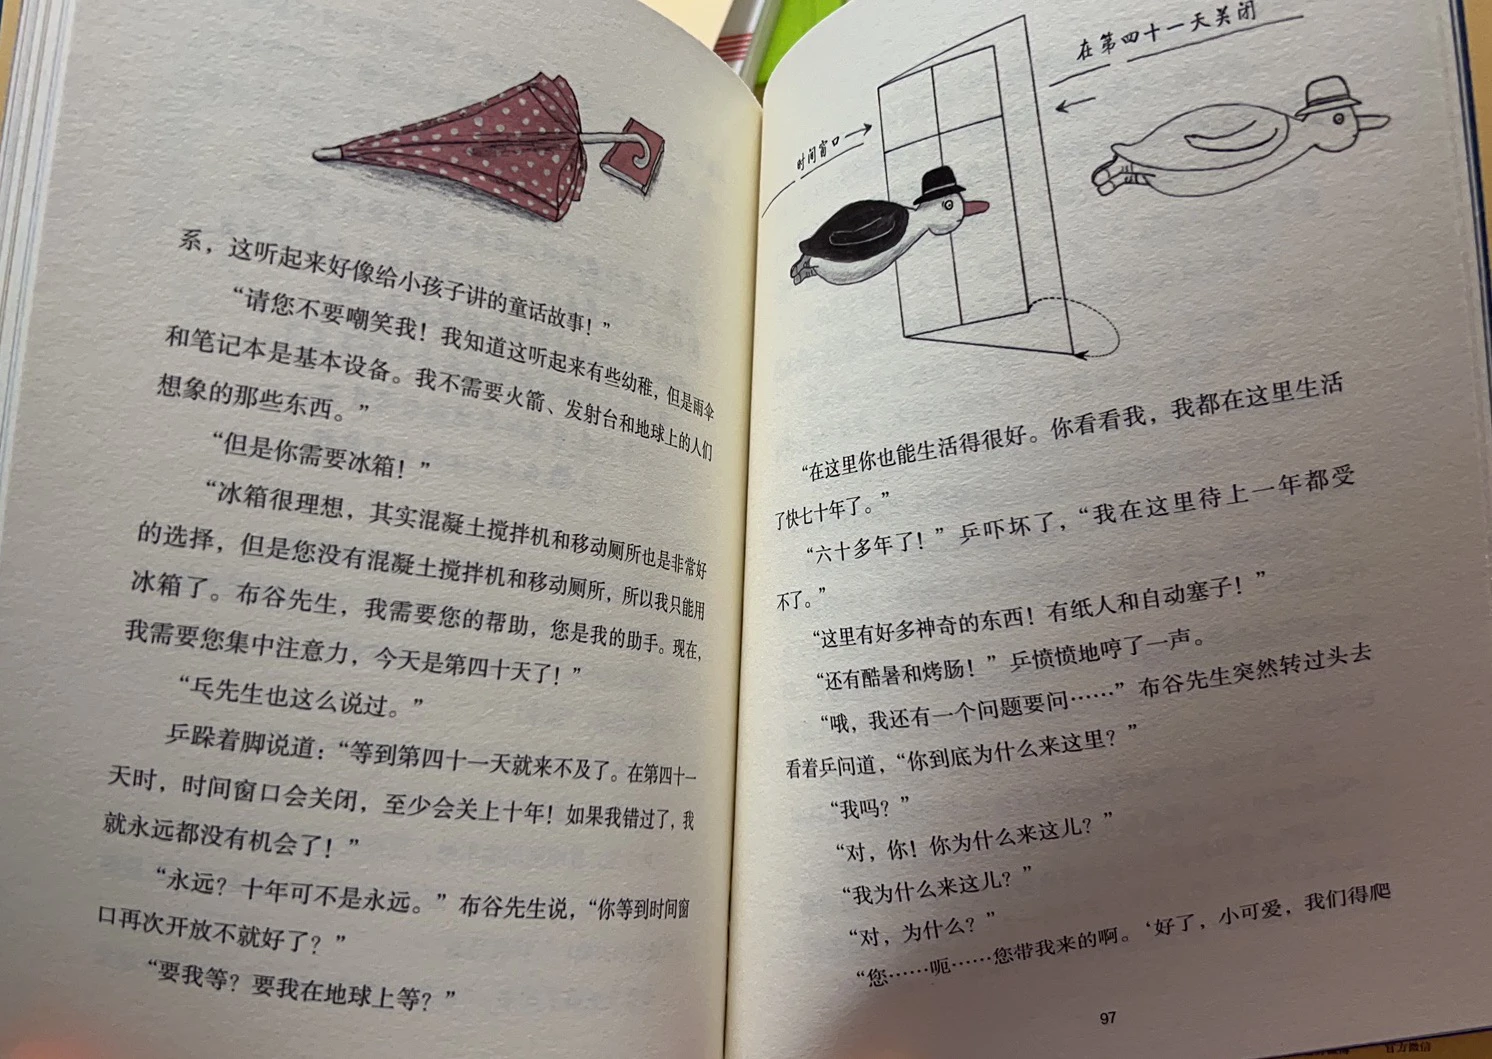 系，这听起来好像给小孩子讲的童话故事！”
“请您不要嘲笑我！我知道这听起来有些幼稚，但是雨伞
和笔记本是基本设备。我不需要火箭、发射台和地球上的人们
想象的那些东西。”
“但是你需要冰箱！”
“冰箱很理想，其实混凝土搅拌机和移动厕所也是非常好
的选择，但是您没有混凝土搅拌机和移动厕所，所以我只能用
冰箱了。布谷先生，我需要您的帮助，您是我的助手。现在，
我需要您集中注意力，今天是第四十天了！”
“乓先生也这么说过。”
乒跺着脚说道：“等到第四十一天就来不及了。在第四十一
天时，时间窗口会关闭，至少会关上十年！如果我错过了，我
就永远都没有机会了！”
“永远？十年可不是永远。”布谷先生说，“你等到时间窗
口再次开放不就好了？”
“要我等？要我在地球上等？”
时间窗口
在第四十一天关闭
“在这里你也能生活得很好。你看看我，我都在这里生活
了快七十年了。”
“六十多年了！”乒吓坏了，“我在这里待上一年都受
不了。”
“这里有好多神奇的东西！有纸人和自动塞子！”
“还有酷暑和烤肠！”乒愤愤地哼了一声。
“哦，我还有一个问题要问……”布谷先生突然转过头去
看着乒问道，“你到底为什么来这里？”
“我吗？”
“对，你！你为什么来这儿？”
“我为什么来这儿？”
“对，为什么？”
“您……呃……您带我来的啊。‘好了，小可爱，我们得爬
97
官方微信